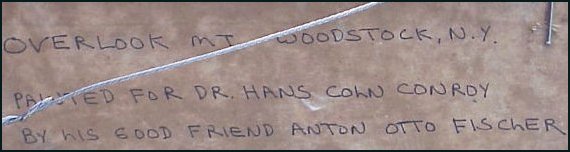 OVERLOOK MT WOODSTOCK, N.Y.
PAINTED FOR DR. HANS COHN CONROY
BY HIS GOOD FRIEND ANTON OTTO FISCHER